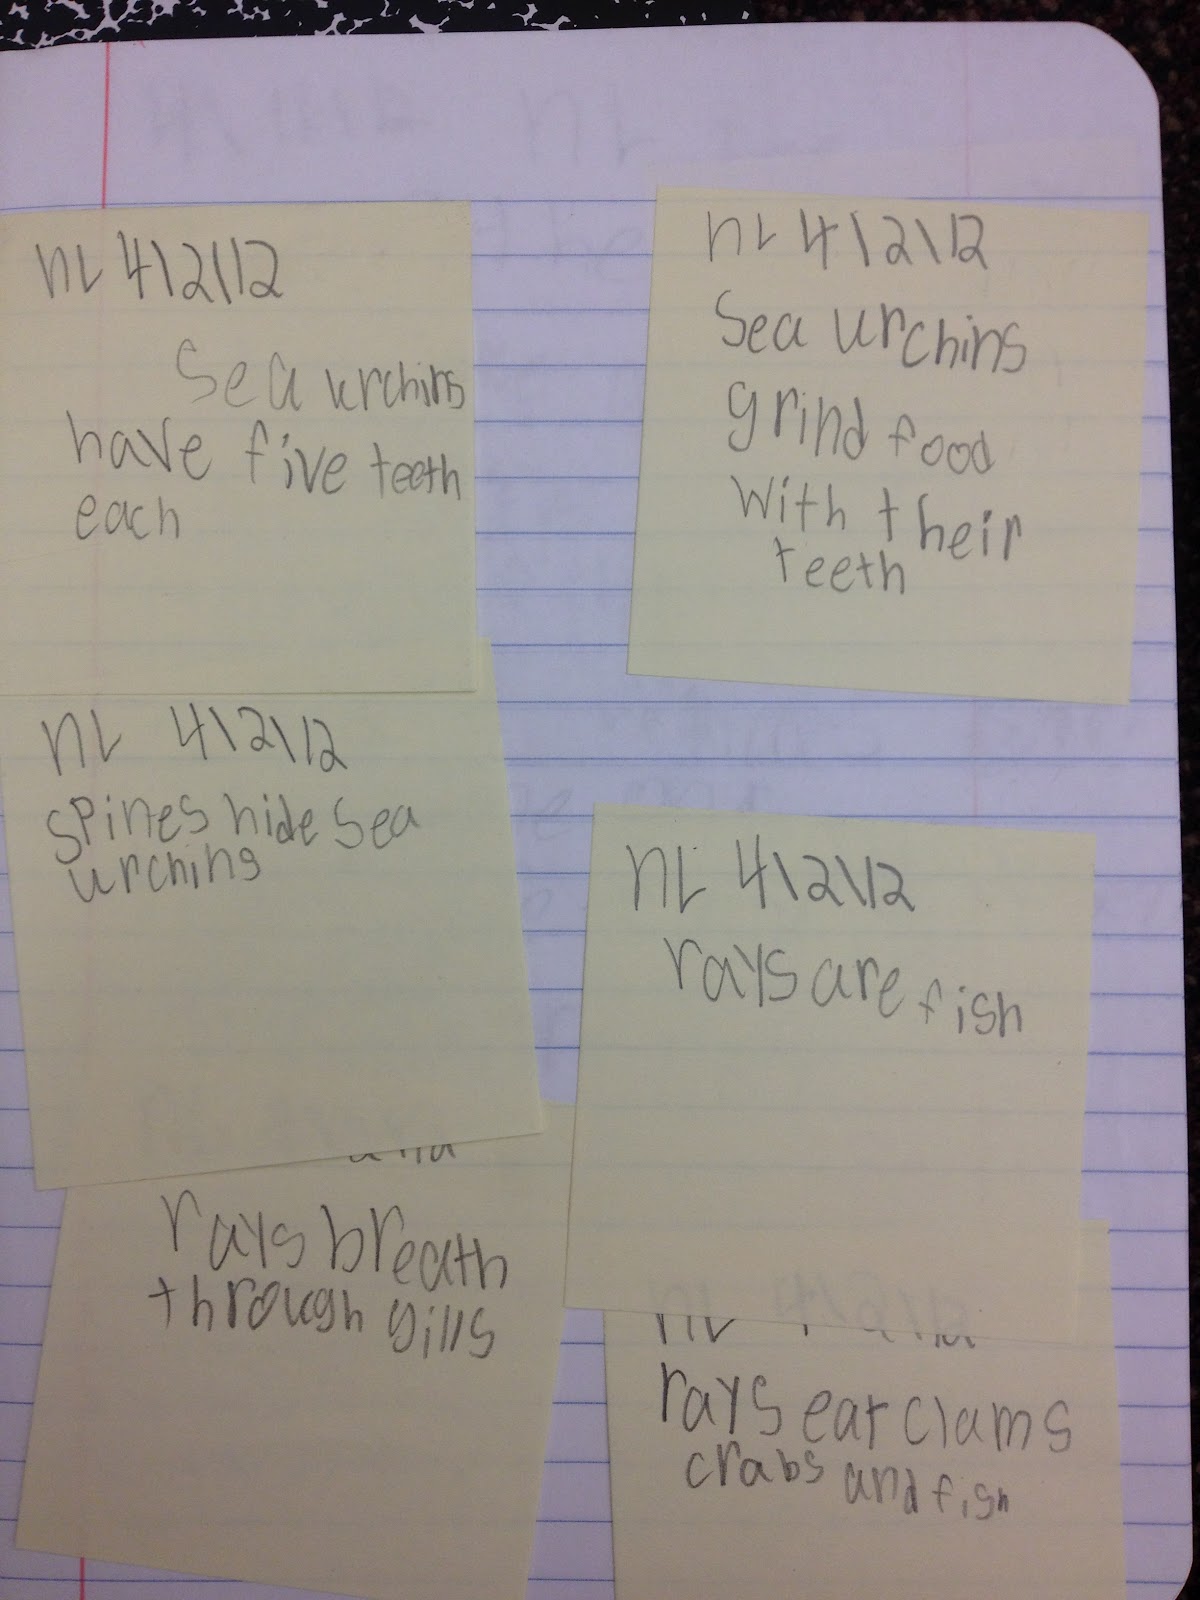 nL 4\2\12
Sea urchins
have five teeth
each
nL 4\2\12
Sea urchins
grind food
with their
teeth
nL 4\2\12
spines hide sea
urchins
nL 4\2\12
rays are fish
rays breath
through gills
nL
rays eat clams
crabs and fish